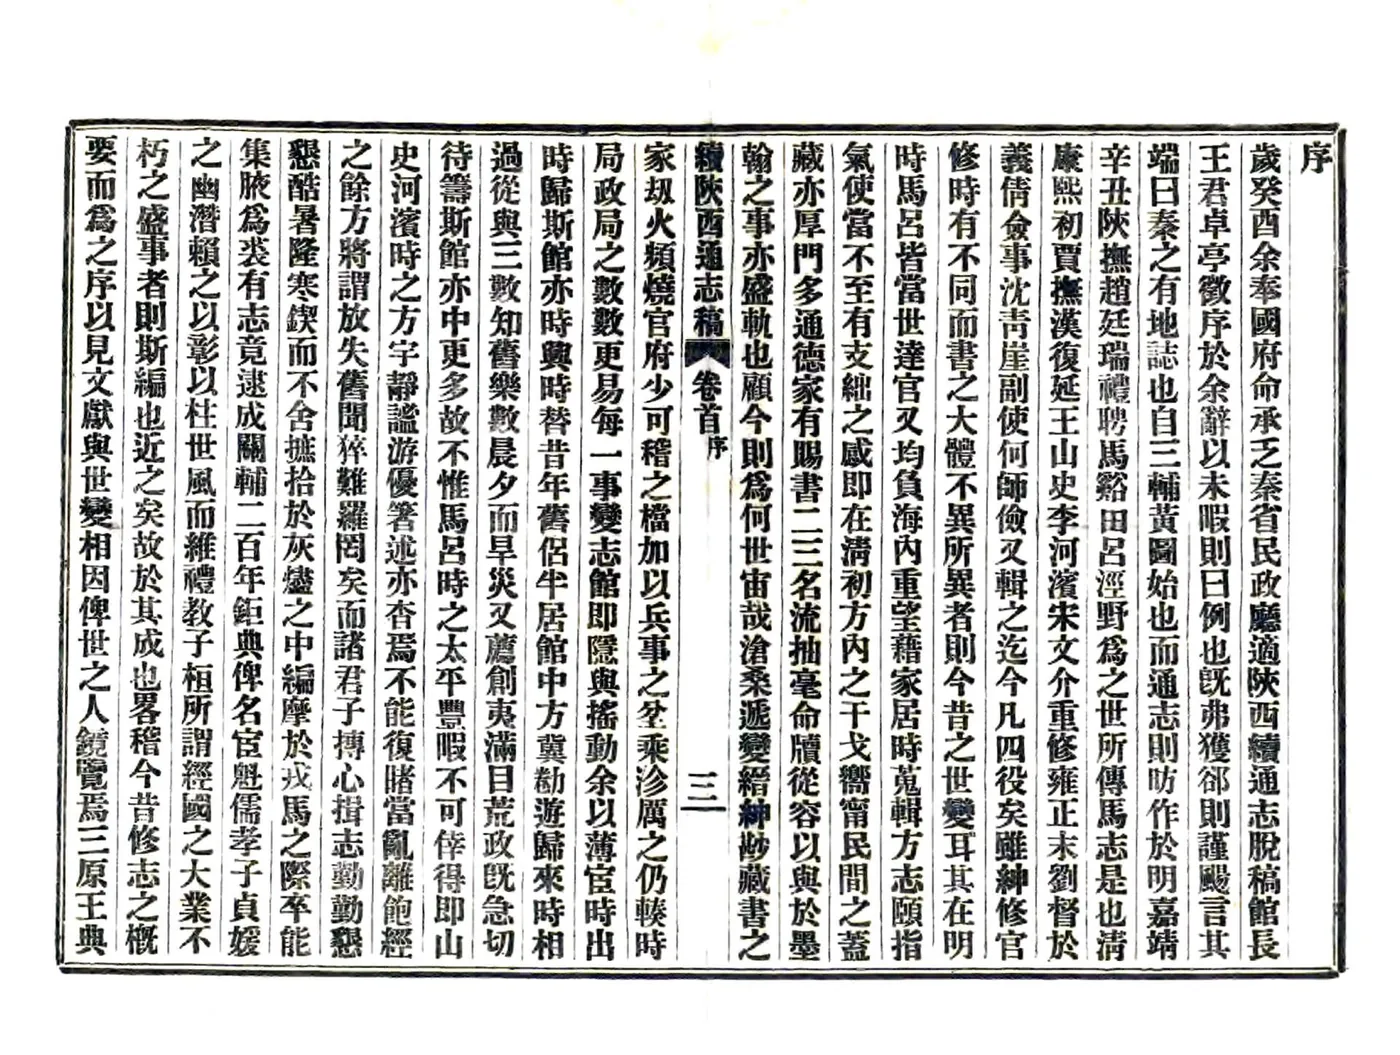 序
歲癸酉余奉國府命承乏秦省民政廳適陝西續通志脫稿館長
王君卓亭徵序於余辭以未暇則曰例也既弗獲郤則謹颺言其
端曰秦之有地誌也自三輔黃圖始也而通志則昉作於明嘉靖
辛丑陝撫趙廷瑞禮聘馬谿田呂涇野為之世所傳馬志是也清
康熙初賈撫漢復延王山史李河濱宋文介重修雍正末劉督於
義倩僉事沈青崖副使何師儉又輯之迄今凡四役矣雖紳修官
修時有不同而書之大體不異所異者則今昔之世變耳其在明
時馬呂皆當世達官又均負海內重望藉家居時蒐輯方志頤指
氣使當不至有支絀之感即在清初方內之干戈嚮甯民間之蓋
藏亦厚門多通德家有賜書二三名流抽毫命牘從容以與於墨
翰之事亦盛軌也顧今則為何世宙哉滄桑遞變縉紳尠藏書之
續陝西通志稿 卷首 序
三
家刼火頻燒官府少可稽之檔加以兵事之坌乘沴厲之仍輳時
局政局之數數更易每一事變志館即隱與搖動余以薄宦時出
時歸斯館亦時興時替昔年舊侶半居館中方冀勌遊歸來時相
過從與三數知舊樂數晨夕而旱災又薦創夷滿目荒政旣急切
待籌斯館亦中更多故不惟馬呂時之太平豐暇不可倖得即山
史河濱時之方宇靜謐游優箸述亦杳焉不能復睹當亂離飽經
之餘方將謂放失舊聞猝難羅罔矣而諸君子摶心揖志勤勤懇
懇酷暑隆寒鍥而不舍摭拾於灰燼之中編摩於戎馬之際卒能
集腋為裘有志竟逮成關輔二百年鉅典俾名宦魁儒孝子貞媛
之幽潛賴之以彰以柱世風而維禮教子桓所謂經國之大業不
朽之盛事者則斯編也近之矣故於其成也畧稽今昔修志之概
要而為之序以見文獻與世變相因俾世之人鏡覽焉三原王典